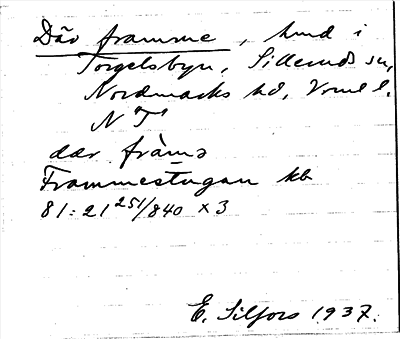 Där framme, hmd i
Torgelsbyn, Silleruds sn,
Nordmarks hd, Vrml l.
NT
dar främə
Frammestugan kb
81:21 251/840 x 3
E. Silfors 1937.